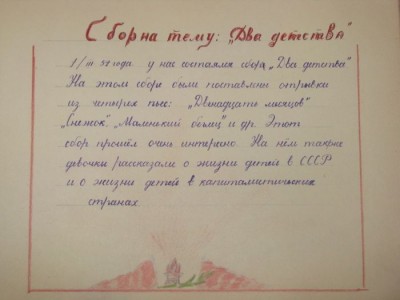 Сбор на тему: „Два детства"
1/III 52 года у нас состоялся сбор „Два детства"
На этом сборе были поставлены отрывки
из четырех пьес: „Двенадцать месяцев"
„Снежок", „Маленький боец" и др. Этот
сбор прошёл очень интерено. На нём также
девочки рассказали о жизни детей в СССР
и о жизни детей в капиталистических
странах.